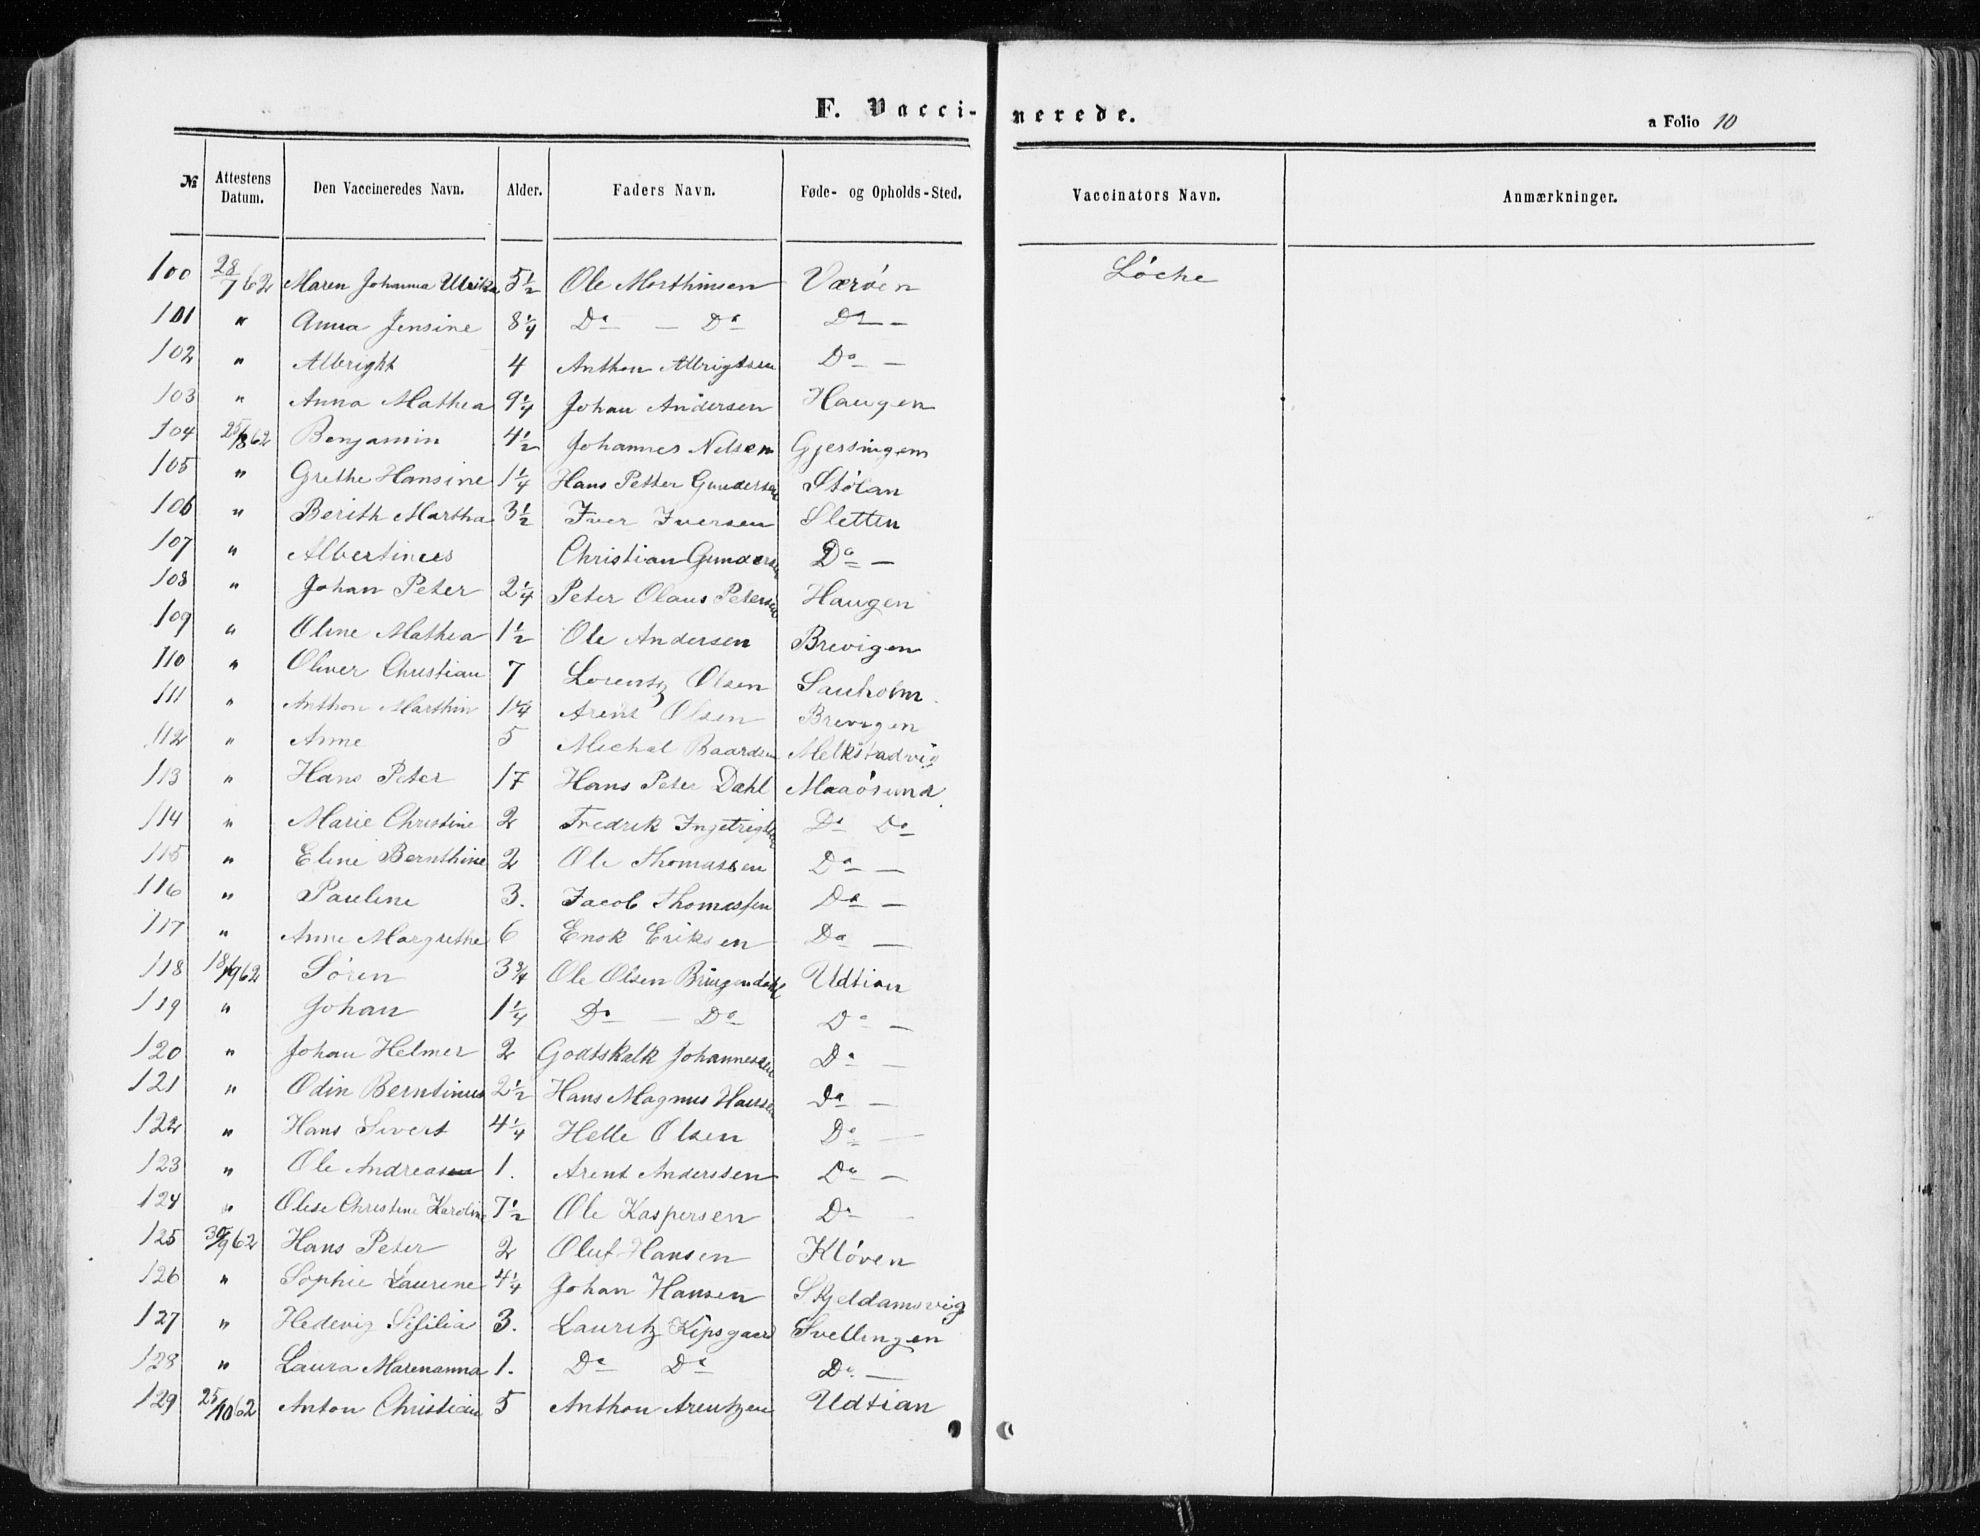 F. Vaccinerede.
a Folio 10
№ Attestens Datum. Den Vaccineredes Navn. Alder. Faders Navn. Føde- og Opholds-Sted. Vaccinators Navn. Anmærkninger.
100 28/7 62 Maren Johanna Ulrika 5½ Ole Morthinsen Værøen Løche
101 " Anna Jensine 8¼ Do — Do Do —
102 " Albright 4 Anthon Albrigtsen Do —
103 " Anna Mathea 9¼ Johan Andersen Haugen
104 25/8 62 Benjamin 4½ Johannes Nilsen Gjessingen
105 " Grethe Hansine 1¼ Hans Petter Gundersen Stølan
106 " Berith Martha 3½ Iver Iversen Sletten
107 " Albertinus Christian Gundersen Do —
108 " Johan Peter 2¼ Peter Olaus Petersen Haugen
109 " Oline Mathea 1½ Ole Andersen Brevigen
110 " Oliver Christian 7 Lorentz Olsen Sauholm
111 " Anthon Marthin 1¼ Arent Olsen Brevigen
112 " Anne 5 Michal Baardsen Melkstadvig
113 " Hans Peter 17 Hans Peter Dahl Maaøsund
114 " Marie Christine 2 Fredrik Do Do
115 " Eline Bernthine 2 Ole Thomassen Do —
116 " Pauline 3. Jacob Thomassen Do —
117 " Anne Margrethe 6 Enok Eriksen Do —
118 18/9 62 Søren 3¾ Ole Olsen Udtian
119 " Johan 1¼ Do — Do Do —
120 " Johan Helmer 2 Godtskalk Johannessen Do —
121 " Odin Berntinus 2½ Hans Magnus Hansen Do —
122 " Hans Sivert 4¼ Helle Olsen Do —
123 " Ole Andreas 1. Arent Anderssen Do —
124 " Olise Christine Karoline 7½ Ole Kaspersen Do —
125 30/9 62 Hans Peter 2 Oluf Hansen Kløven
126 " Sophie Laurene 4¼ Johan Hansen Skjeldamsvig
127 " Hedevig Sisilia 3. Lauritz Kipsgaard Svellingen
128 " Laura Marenanna 1. Do Do Do —
129 25/10 62 Anton Christian 5 Anthon Arentzen Udtian